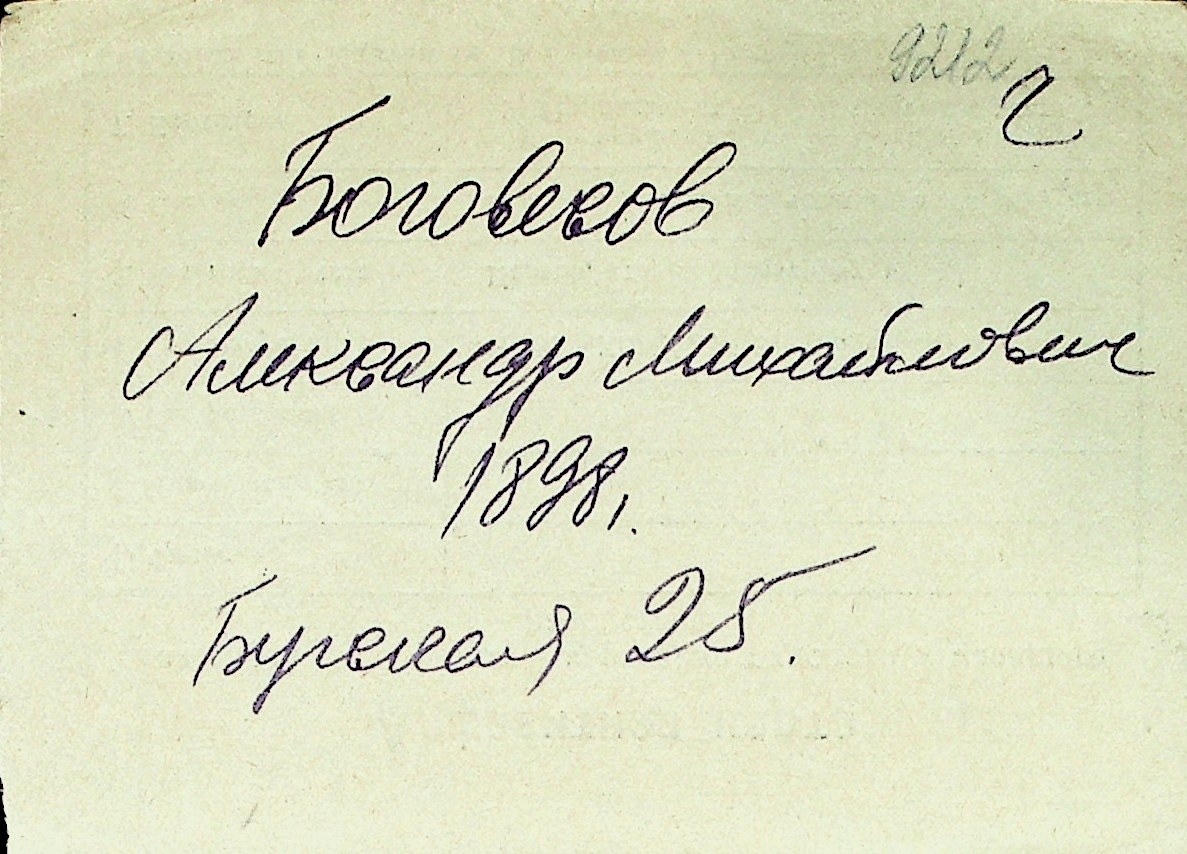 9212
г
Боговеков
Александр Михайлович
1898г.
Бугская 25.